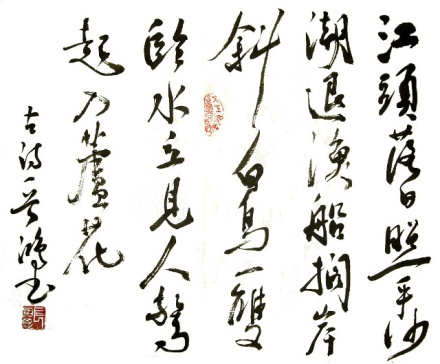 江頭落日照平沙
潮退漁船搁岸
斜白鳥一雙
臨水立見人驚
起入蘆花
古诗一首鴻书